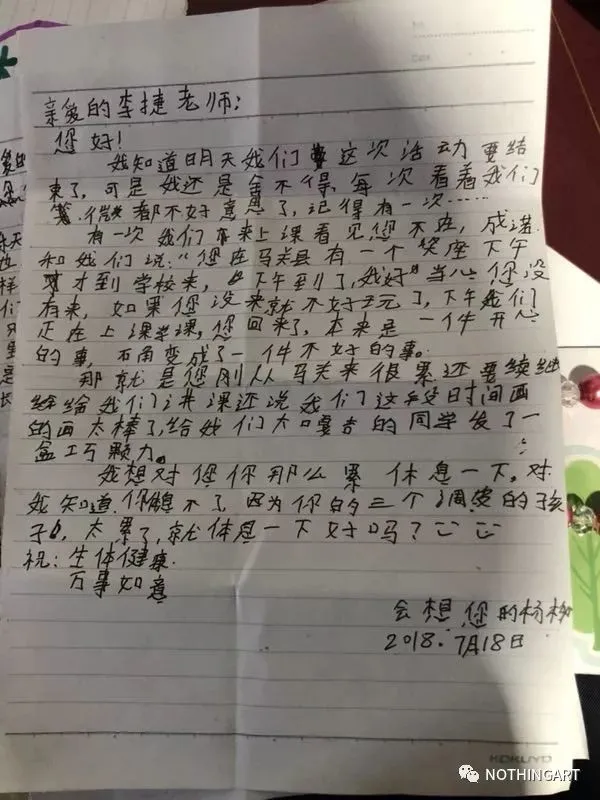 亲爱的李捷老师:
您好!
我知道明天我们这次活动要结
束了,可是我还是舍不得,每次看着我们
微都不好意思了,记得有一次……
有一次我们下来上课看见您不在,成诺
和我们说:"您在马关县有一个 座下午
才到学校来,下午到了,我好"当心"您没
有来,如果您没来就不好 了,下午我们
正在上课 课,您回来了,本来是一件开心
的事,而 变成了一件不好的事。
那就是您刚从马关来很累还要续继
给给我们 课还说我们这 时间画
的画太棒了,给我们大口 的同学发了一
盒工巧颗力。
我想对您你那么累 休息一下,对
我知道,你 不了,因为你的三个调皮的孩
子,太累了,就体息一下好吗?
祝:生体健康.
万事如意
会想您的杨
2018.7月18日
KOKUYO
NOTHINGART